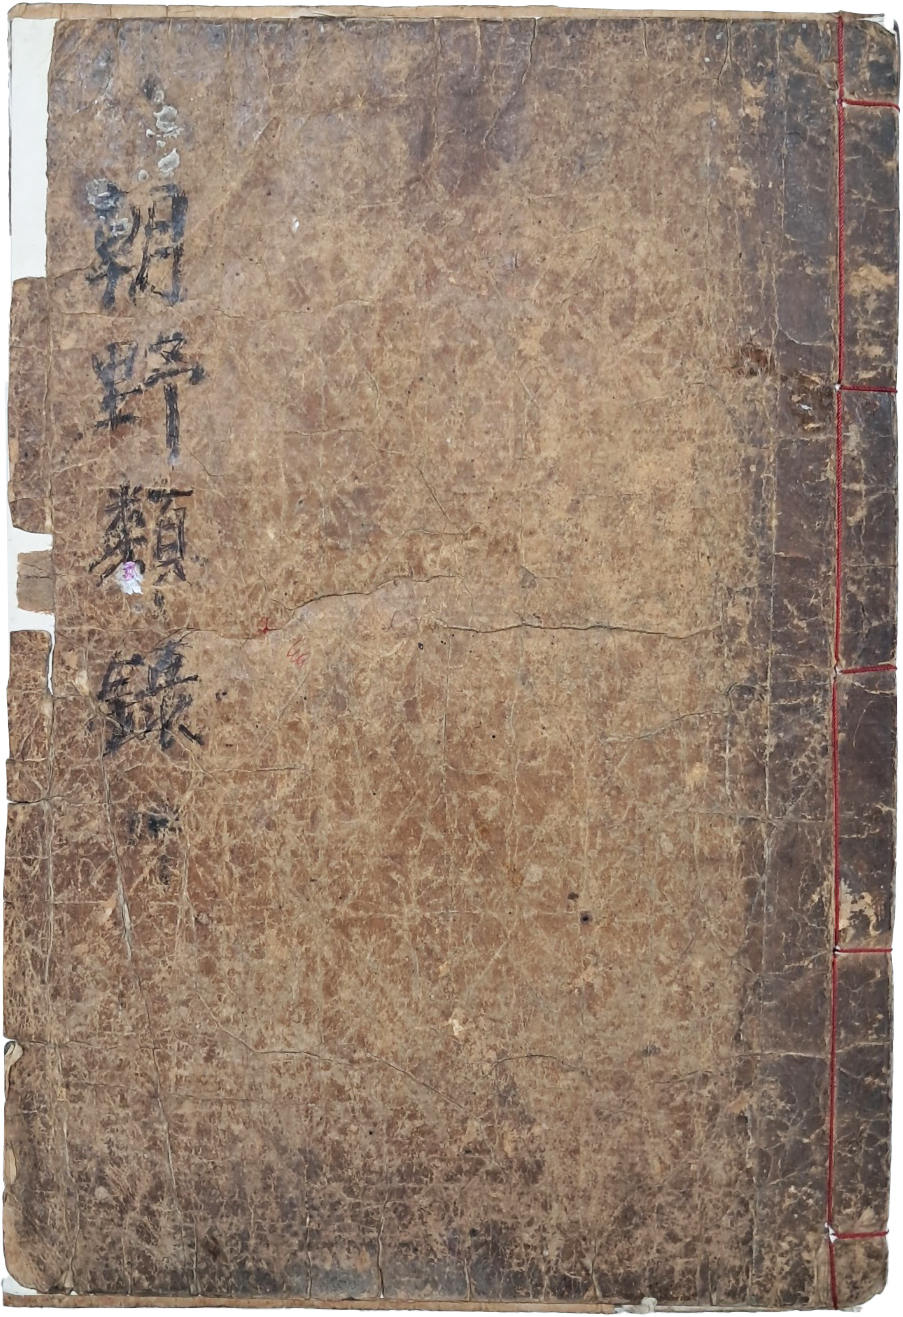 朝野類錄